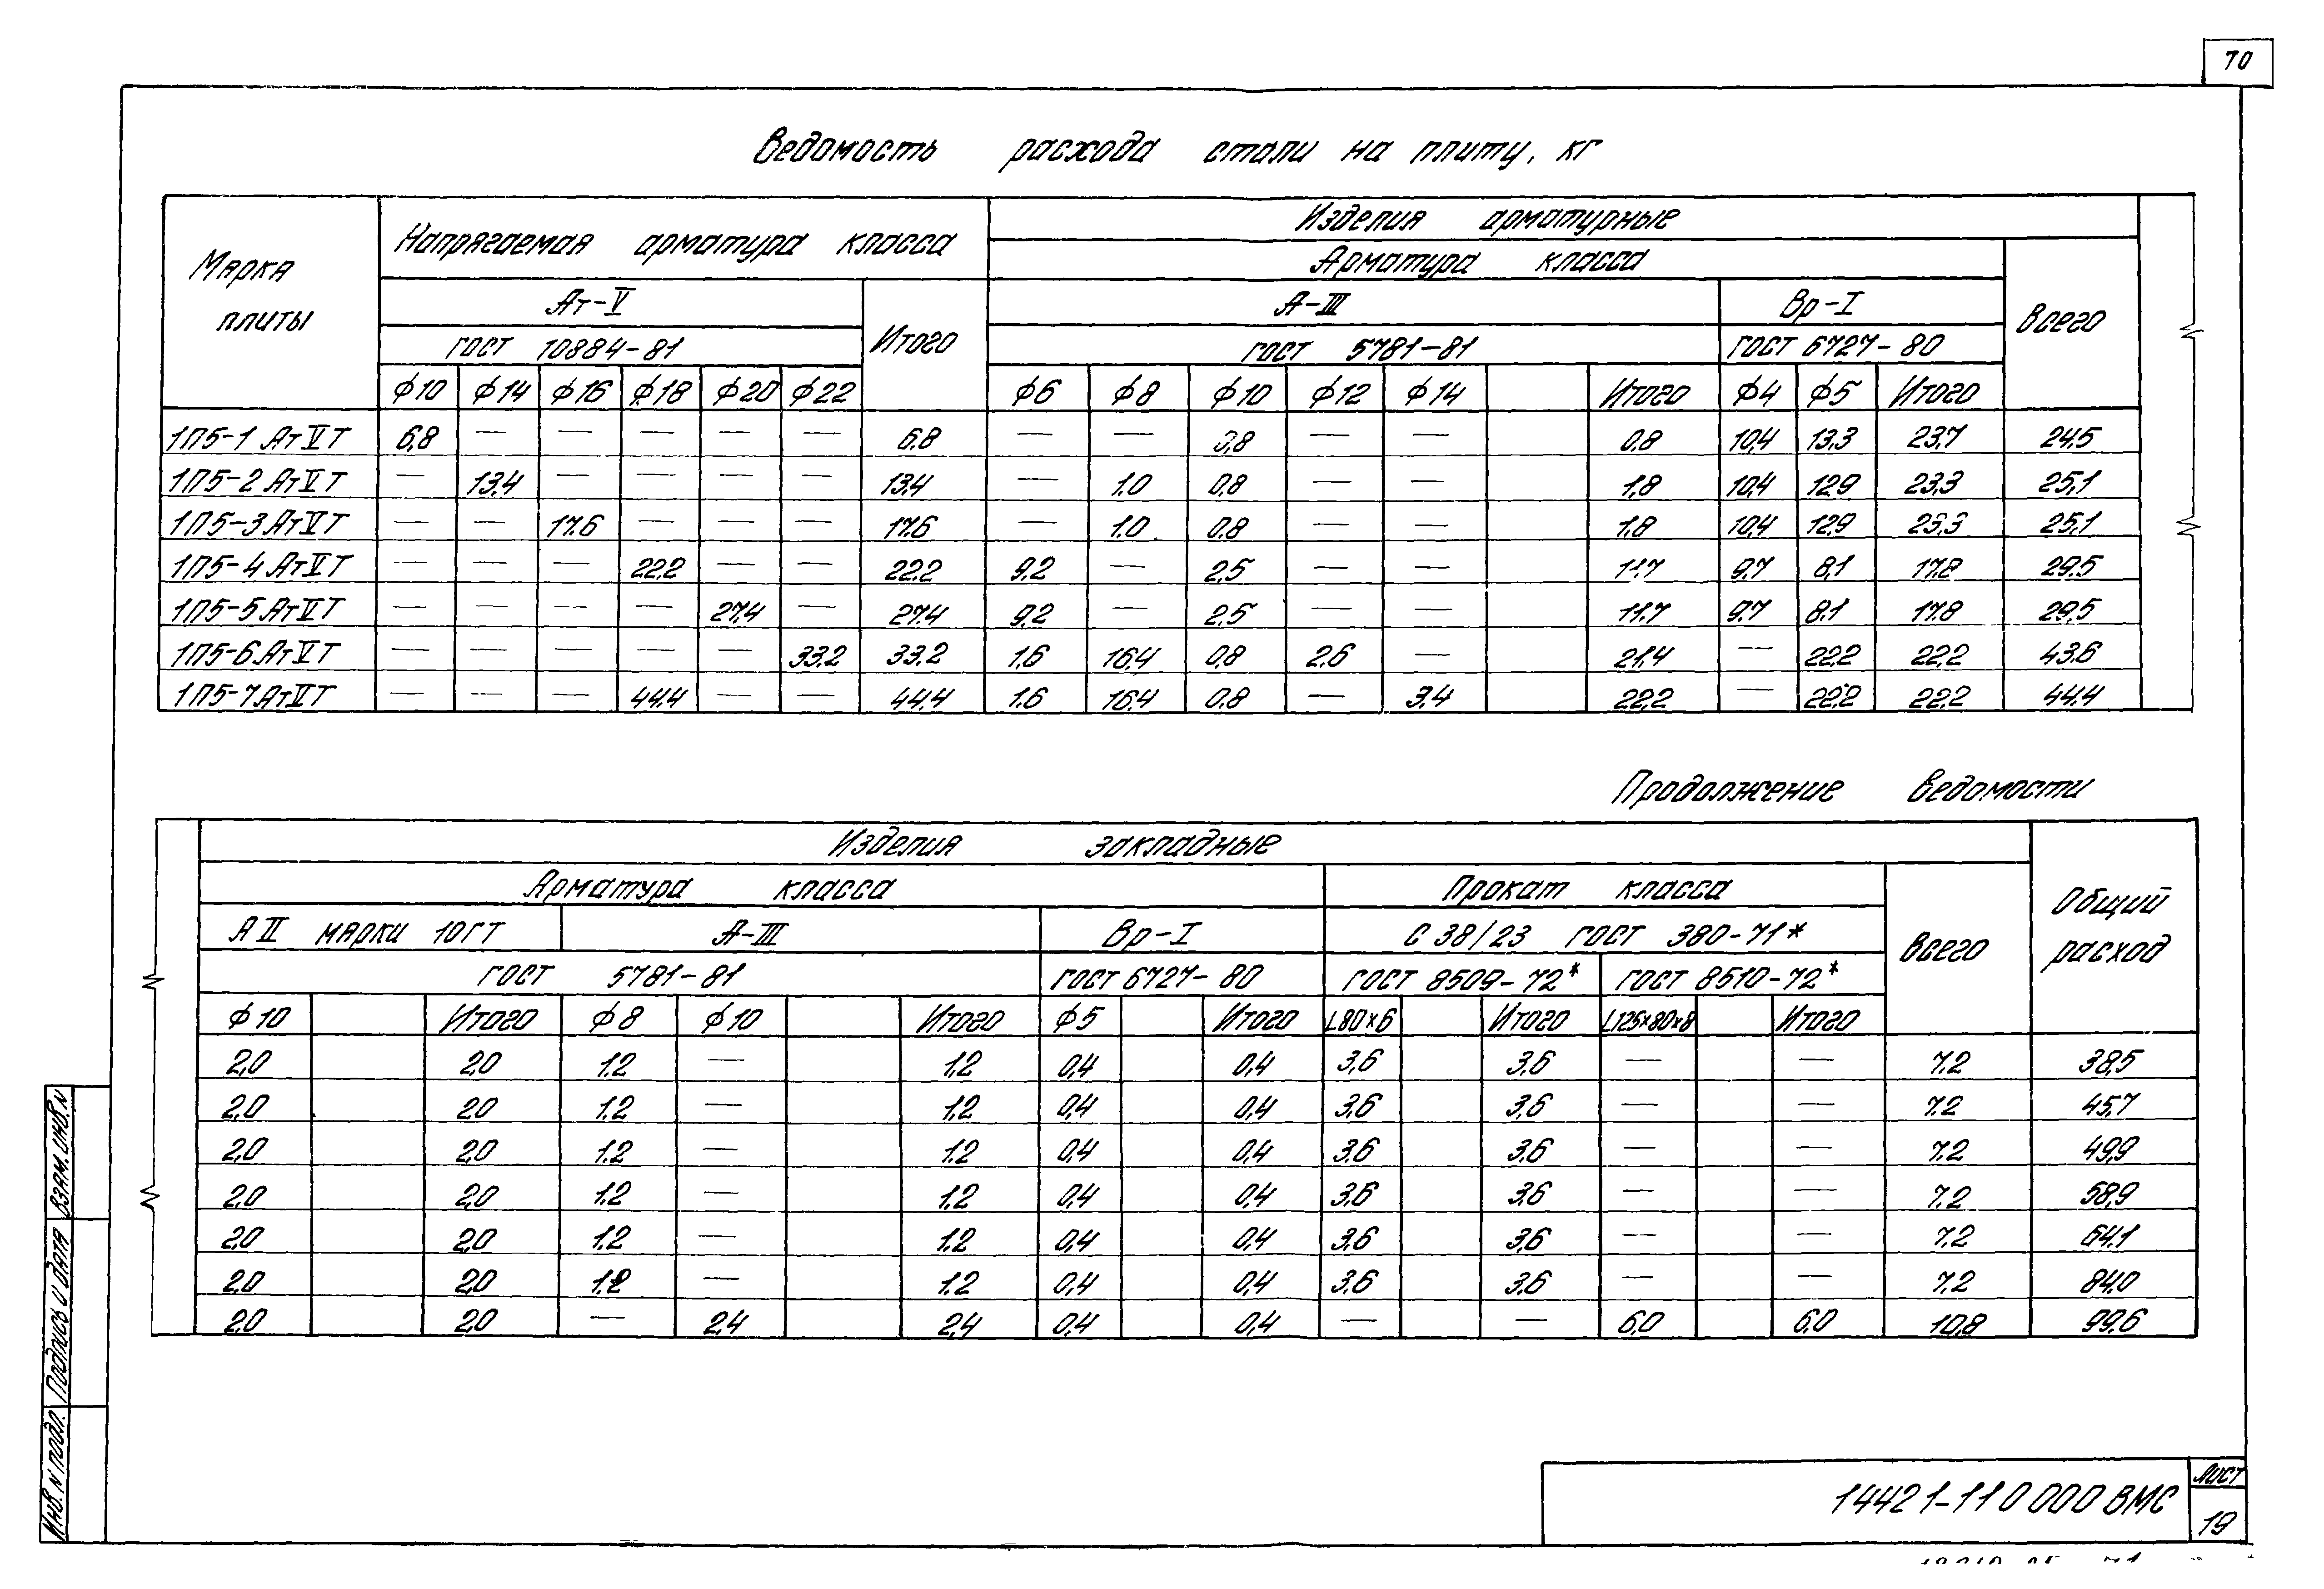 70
Ведомость расхода стали на плиту, кг
Марка плиты
Напрягаемая арматура класса
Изделия арматурные
Арматура класса
Ат-V Итого А-III Вр-I Всего
ГОСТ 10884-81 ГОСТ 5781-81 ГОСТ 6727-80
ф10 ф14 ф16 ф18 ф20 ф22 ф6 ф8 ф10 ф12 ф14 Итого ф4 ф5 Итого
1П5-1 АтVТ 6,8 — — — — — 6,8 — — 0,8 — — 0,8 10,4 13,3 23,7 24,5
1П5-2 АтVТ — 13,4 — — — — 13,4 — 1,0 0,8 — — 1,8 10,4 12,9 23,3 25,1
1П5-3 АтVТ — — 17,6 — — — 17,6 — 1,0 0,8 — — 1,8 10,4 12,9 23,3 25,1
1П5-4 АтVТ — — — 22,2 — — 22,2 9,2 — 2,5 — — 11,7 9,7 8,1 17,8 29,5
1П5-5 АтVТ — — — — 27,4 — 27,4 9,2 — 2,5 — — 11,7 9,7 8,1 17,8 29,5
1П5-6 АтVТ — — — — — 33,2 33,2 1,6 16,4 0,8 2,6 — 21,4 — 22,2 22,2 43,6
1П5-7 АтVТ — — — 44,4 — — 44,4 1,6 16,4 0,8 — 3,4 22,2 — 22,2 22,2 44,4
Продолжение ведомости
Изделия закладные
Общий расход
Арматура класса Прокат класса Всего
А II марки 10ГТ А-III Вр-I С 38/23 ГОСТ 380-71*
ГОСТ 5781-81 ГОСТ 6727-80 ГОСТ 8509-72* ГОСТ 8510-72*
ф10 Итого ф8 ф10 Итого ф5 Итого L80×6 Итого L125×80×8 Итого
2,0 2,0 1,2 — 1,2 0,4 0,4 3,6 3,6 — — 7,2 38,5
2,0 2,0 1,2 — 1,2 0,4 0,4 3,6 3,6 — — 7,2 45,7
2,0 2,0 1,2 — 1,2 0,4 0,4 3,6 3,6 — — 7,2 49,9
2,0 2,0 1,2 — 1,2 0,4 0,4 3,6 3,6 — — 7,2 58,9
2,0 2,0 1,2 — 1,2 0,4 0,4 3,6 3,6 — — 7,2 64,1
2,0 2,0 1,2 — 1,2 0,4 0,4 3,6 3,6 — — 7,2 84,0
2,0 2,0 — 2,4 2,4 0,4 0,4 — — 6,0 6,0 10,8 99,6
Взам. инв. N
Подпись и дата
Инв. N подл.
1442 1-11 0 000 ВМС
Лист
19